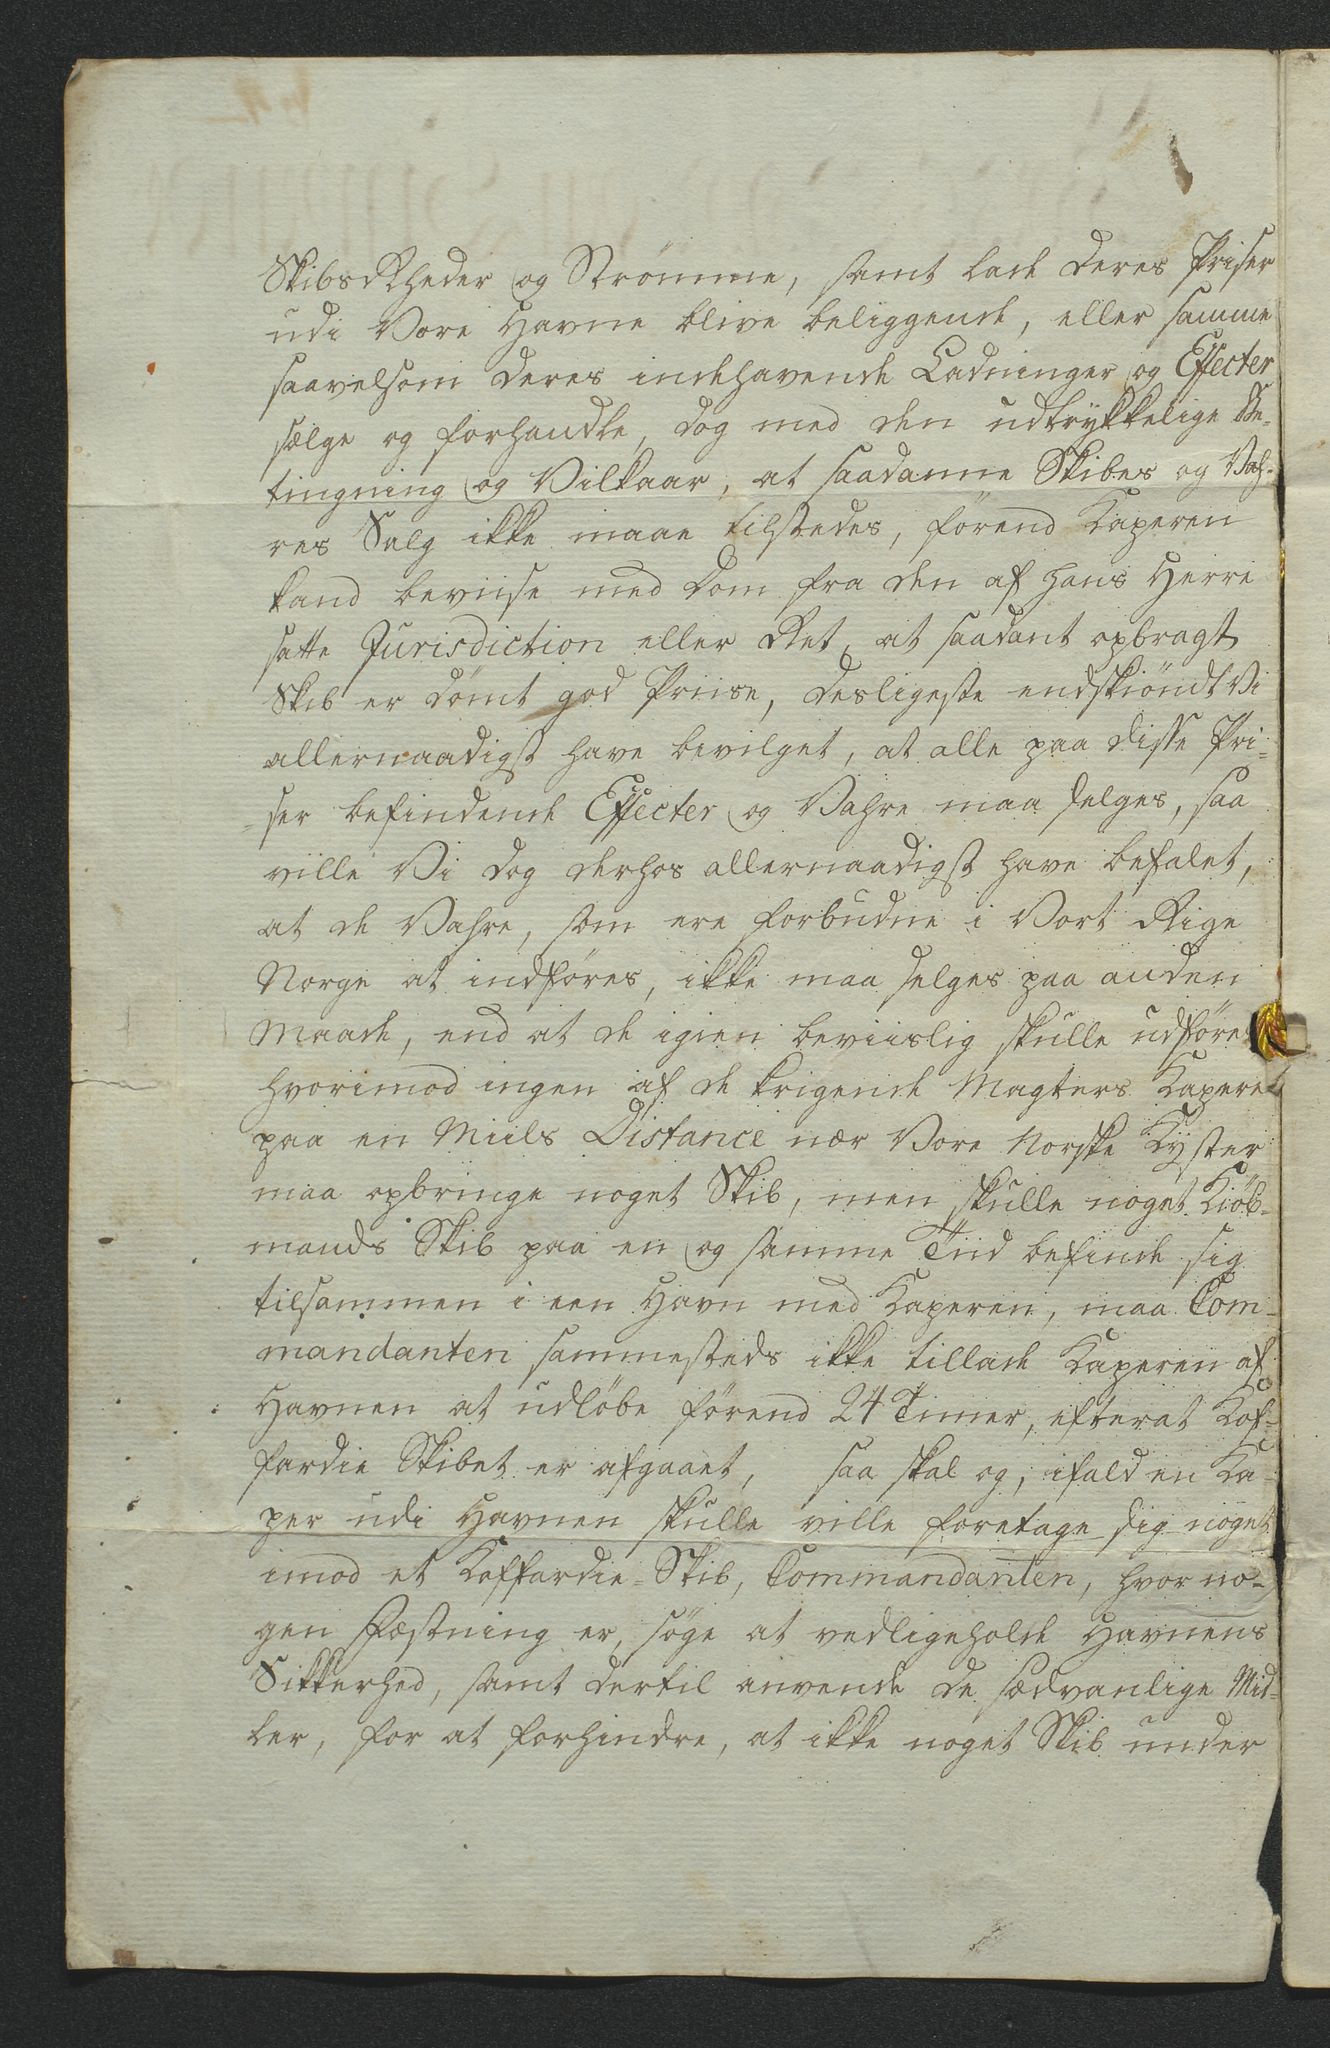 Skibs Rheder og Strømme, samt lade deres Priser
udi Vore Havne blive beliggende, eller samme
saavelsom deres indehavende Ladninger og Effecter
sælge og forhandle, dog med den udtrykkelige Be-
tingning og Vilkaar, at saadanne Skibes og Vah-
res Salg ikke maae tilstedes, førend Kaperen
kand beviise med Dom fra den af hans Herre
satte Jurisdiction eller Ret, at saadant opbragt
Skib er dømt god Priise, desligeste endskiøndt Vi
allernaadigst have bevilget, at alle paa disse Pri-
ser befindende Effecter og Vahre maa selges, saa
ville Vi dog derhos allernaadigst have befalet,
at de Vahre, som ere forbudne i Vort Rige
Norge at indføres, ikke maa selges paa anden
Maade, end at de igien beviislig skulle udføres
hvorimod ingen af de krigende Magters Kapere
paa en Miils Distance nær Vore Norske Kyster
maa opbringe noget Skib, men skulle noget Kiöb-
mands Skib paa en og samme Tiid befinde sig
tilsammen i een Havn med Kaperen, maa Com-
mandanten sammesteds ikke tillade Kaperen af
Havnen at udløbe førend 24 Timer, efterat Kof-
fardie Skibet er afgaaet, saa skal og, ifald en Ka-
per udi Havnen skulle ville foretage sig noget
imod et Koffardie-Skib, Commandanten, hvor no-
gen Fæstning er, søge at vedligeholde Havnens
Sikkerhed, samt dertil anvende de sædvanlige Mid-
ler, for at forhindre, at ikke noget Skib under